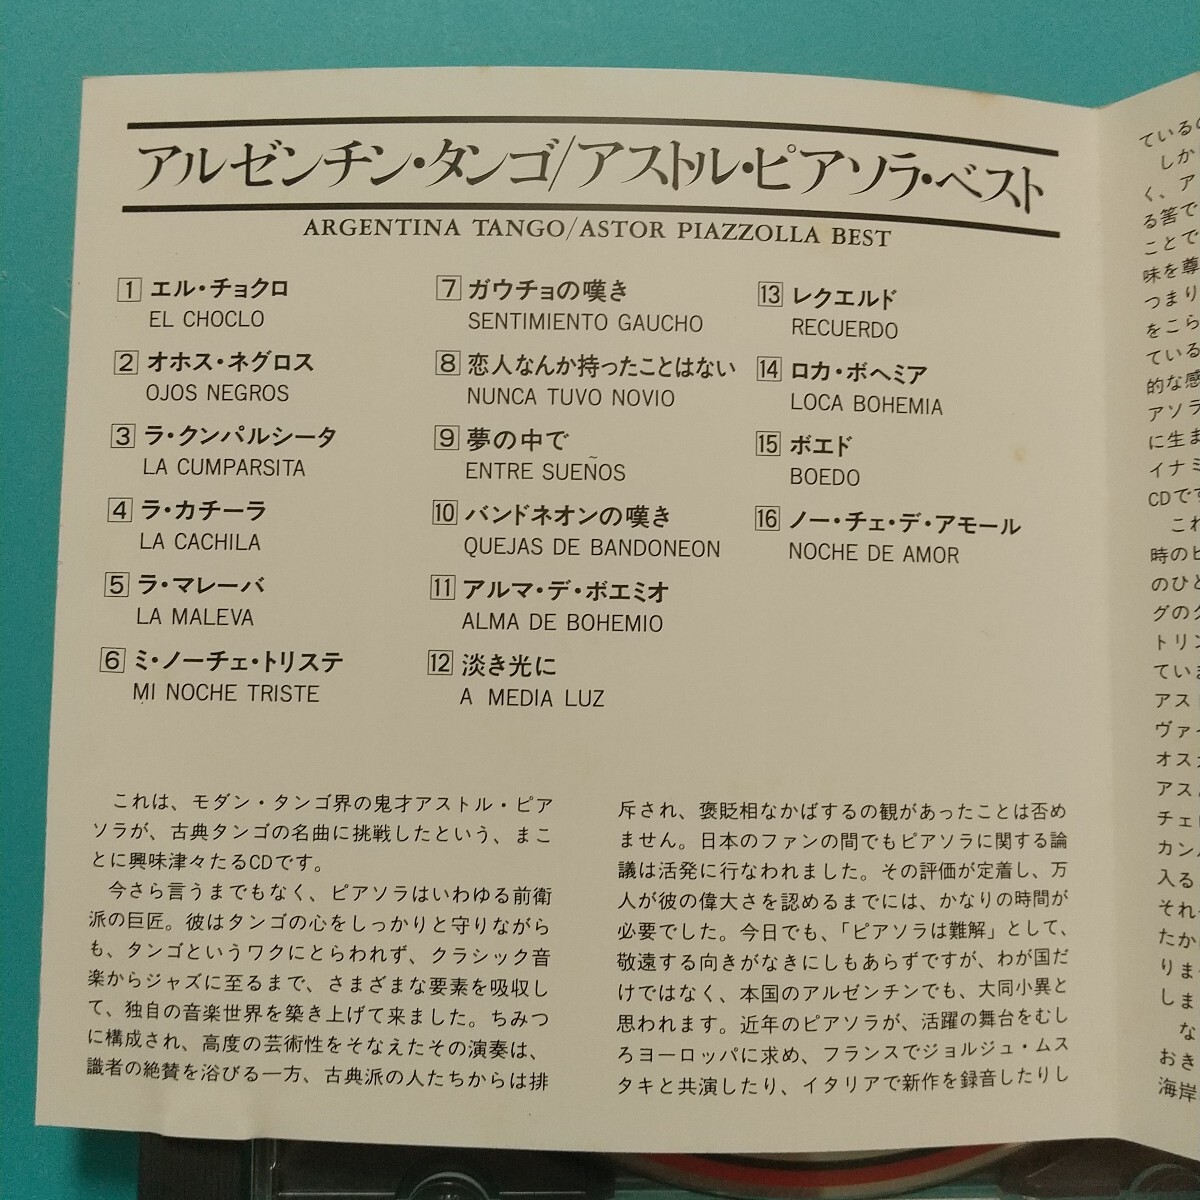 アルゼンチン・タンゴ/アストル・ピアソラ・ベスト
ARGENTINA TANGO/ASTOR PIAZZOLLA BEST
1 エル・チョクロ
EL CHOCLO
2 オホス・ネグロス
OJOS NEGROS
3 ラ・クンパルシータ
LA CUMPARSITA
4 ラ・カチーラ
LA CACHILA
5 ラ・マレーバ
LA MALEVA
6 ミ・ノーチェ・トリステ
MI NOCHE TRISTE
7 ガウチョの嘆き
SENTIMIENTO GAUCHO
8 恋人なんか持ったことはない
NUNCA TUVO NOVIO
9 夢の中で
ENTRE SUEÑOS
10 バンドネオンの嘆き
QUEJAS DE BANDONEON
11 アルマ・デ・ボエミオ
ALMA DE BOHEMIO
12 淡き光に
A MEDIA LUZ
13 レクエルド
RECUERDO
14 ロカ・ボヘミア
LOCA BOHEMIA
15 ボエド
BOEDO
16 ノー・チェ・デ・アモール
NOCHE DE AMOR
これは、モダン・タンゴ界の鬼才アストル・ピア
ソラが、古典タンゴの名曲に挑戦したという、まこ
とに興味津々たるCDです。
今さら言うまでもなく、ピアソラはいわゆる前衛
派の巨匠。彼はタンゴの心をしっかりと守りながら
も、タンゴというワクにとらわれず、クラシック音
楽からジャズに至るまで、さまざまな要素を吸収し
て、独自の音楽世界を築き上げて来ました。ちみつ
に構成され、高度の芸術性をそなえたその演奏は、
識者の絶賛を浴びる一方、古典派の人たちからは排
斥され、褒貶相なかばするの観があったことは否め
ません。日本のファンの間でもピアソラに関する論
議は活発に行なわれました。その評価が定着し、万
人が彼の偉大さを認めるまでには、かなりの時間が
必要でした。今日でも、「ピアソラは難解」として、
敬遠する向きがなきにしもあらずですが、わが国だ
けではなく、本国のアルゼンチンでも、大同小異と
思われます。近年のピアソラが、活躍の舞台をむし
ろヨーロッパに求め、フランスでジョルジュ・ムス
タキと共演したり、イタリアで新作を録音したりし
ているの
しか
く、ア
る筈で
ことで
味を尊
つまり
をこら
ている
的な感
アソラ
に生ま
イナミ
CDです
これ
時のピ
のひと
グのク
トリン
ていま
アスト
ヴァイ
オスカ
アス
チェロ
カン
入る
それ
たか
りま
しま
な
おき
海岸